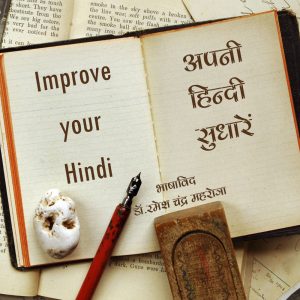 Improve
your
Hindi
अपनी
हिन्दी
सुधारें
भाषाविद
डॉ.रमेश चंद्र महरोत्रा